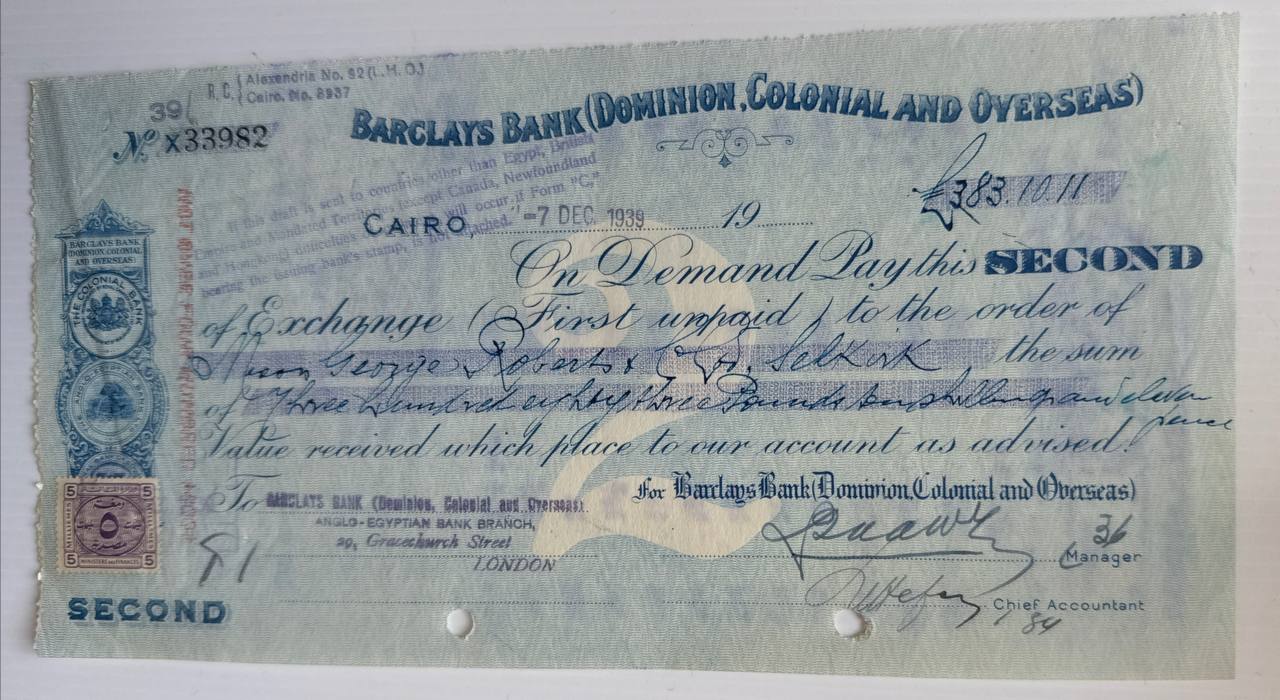 R.C. { Alexandria No. 92 (L.H.O.)
Cairo. No. 8937
39/
No. X33982
BARCLAYS BANK (DOMINION, COLONIAL AND OVERSEAS)
If this draft is sent to countries other than Egypt, British
and Mandated Territories (except Canada, Newfoundland
and will occur, if Form "C,"
bearing the issuing bank's stamp, is not attached.
£383.10.11
CAIRO, -7 DEC. 1939 19
2
On Demand Pay this SECOND
of Exchange (First unpaid) to the order of
George Roberts & Selkirk the sum
of Three hundred eighty three Pounds ten shillings and eleven
pence
Value received which place to our account as advised.
BARCLAYS BANK
(DOMINION, COLONIAL
AND OVERSEAS)
THE COLONIAL BANK
To BARCLAYS BANK (Dominion, Colonial and Overseas).
ANGLO-EGYPTIAN BANK BRANCH,
29, Gracechurch Street
LONDON
For Barclays Bank (Dominion, Colonial and Overseas)
36
Manager
Chief Accountant
84
5 5
٥
5 5
MINISTERE DES FINANCES
SECOND